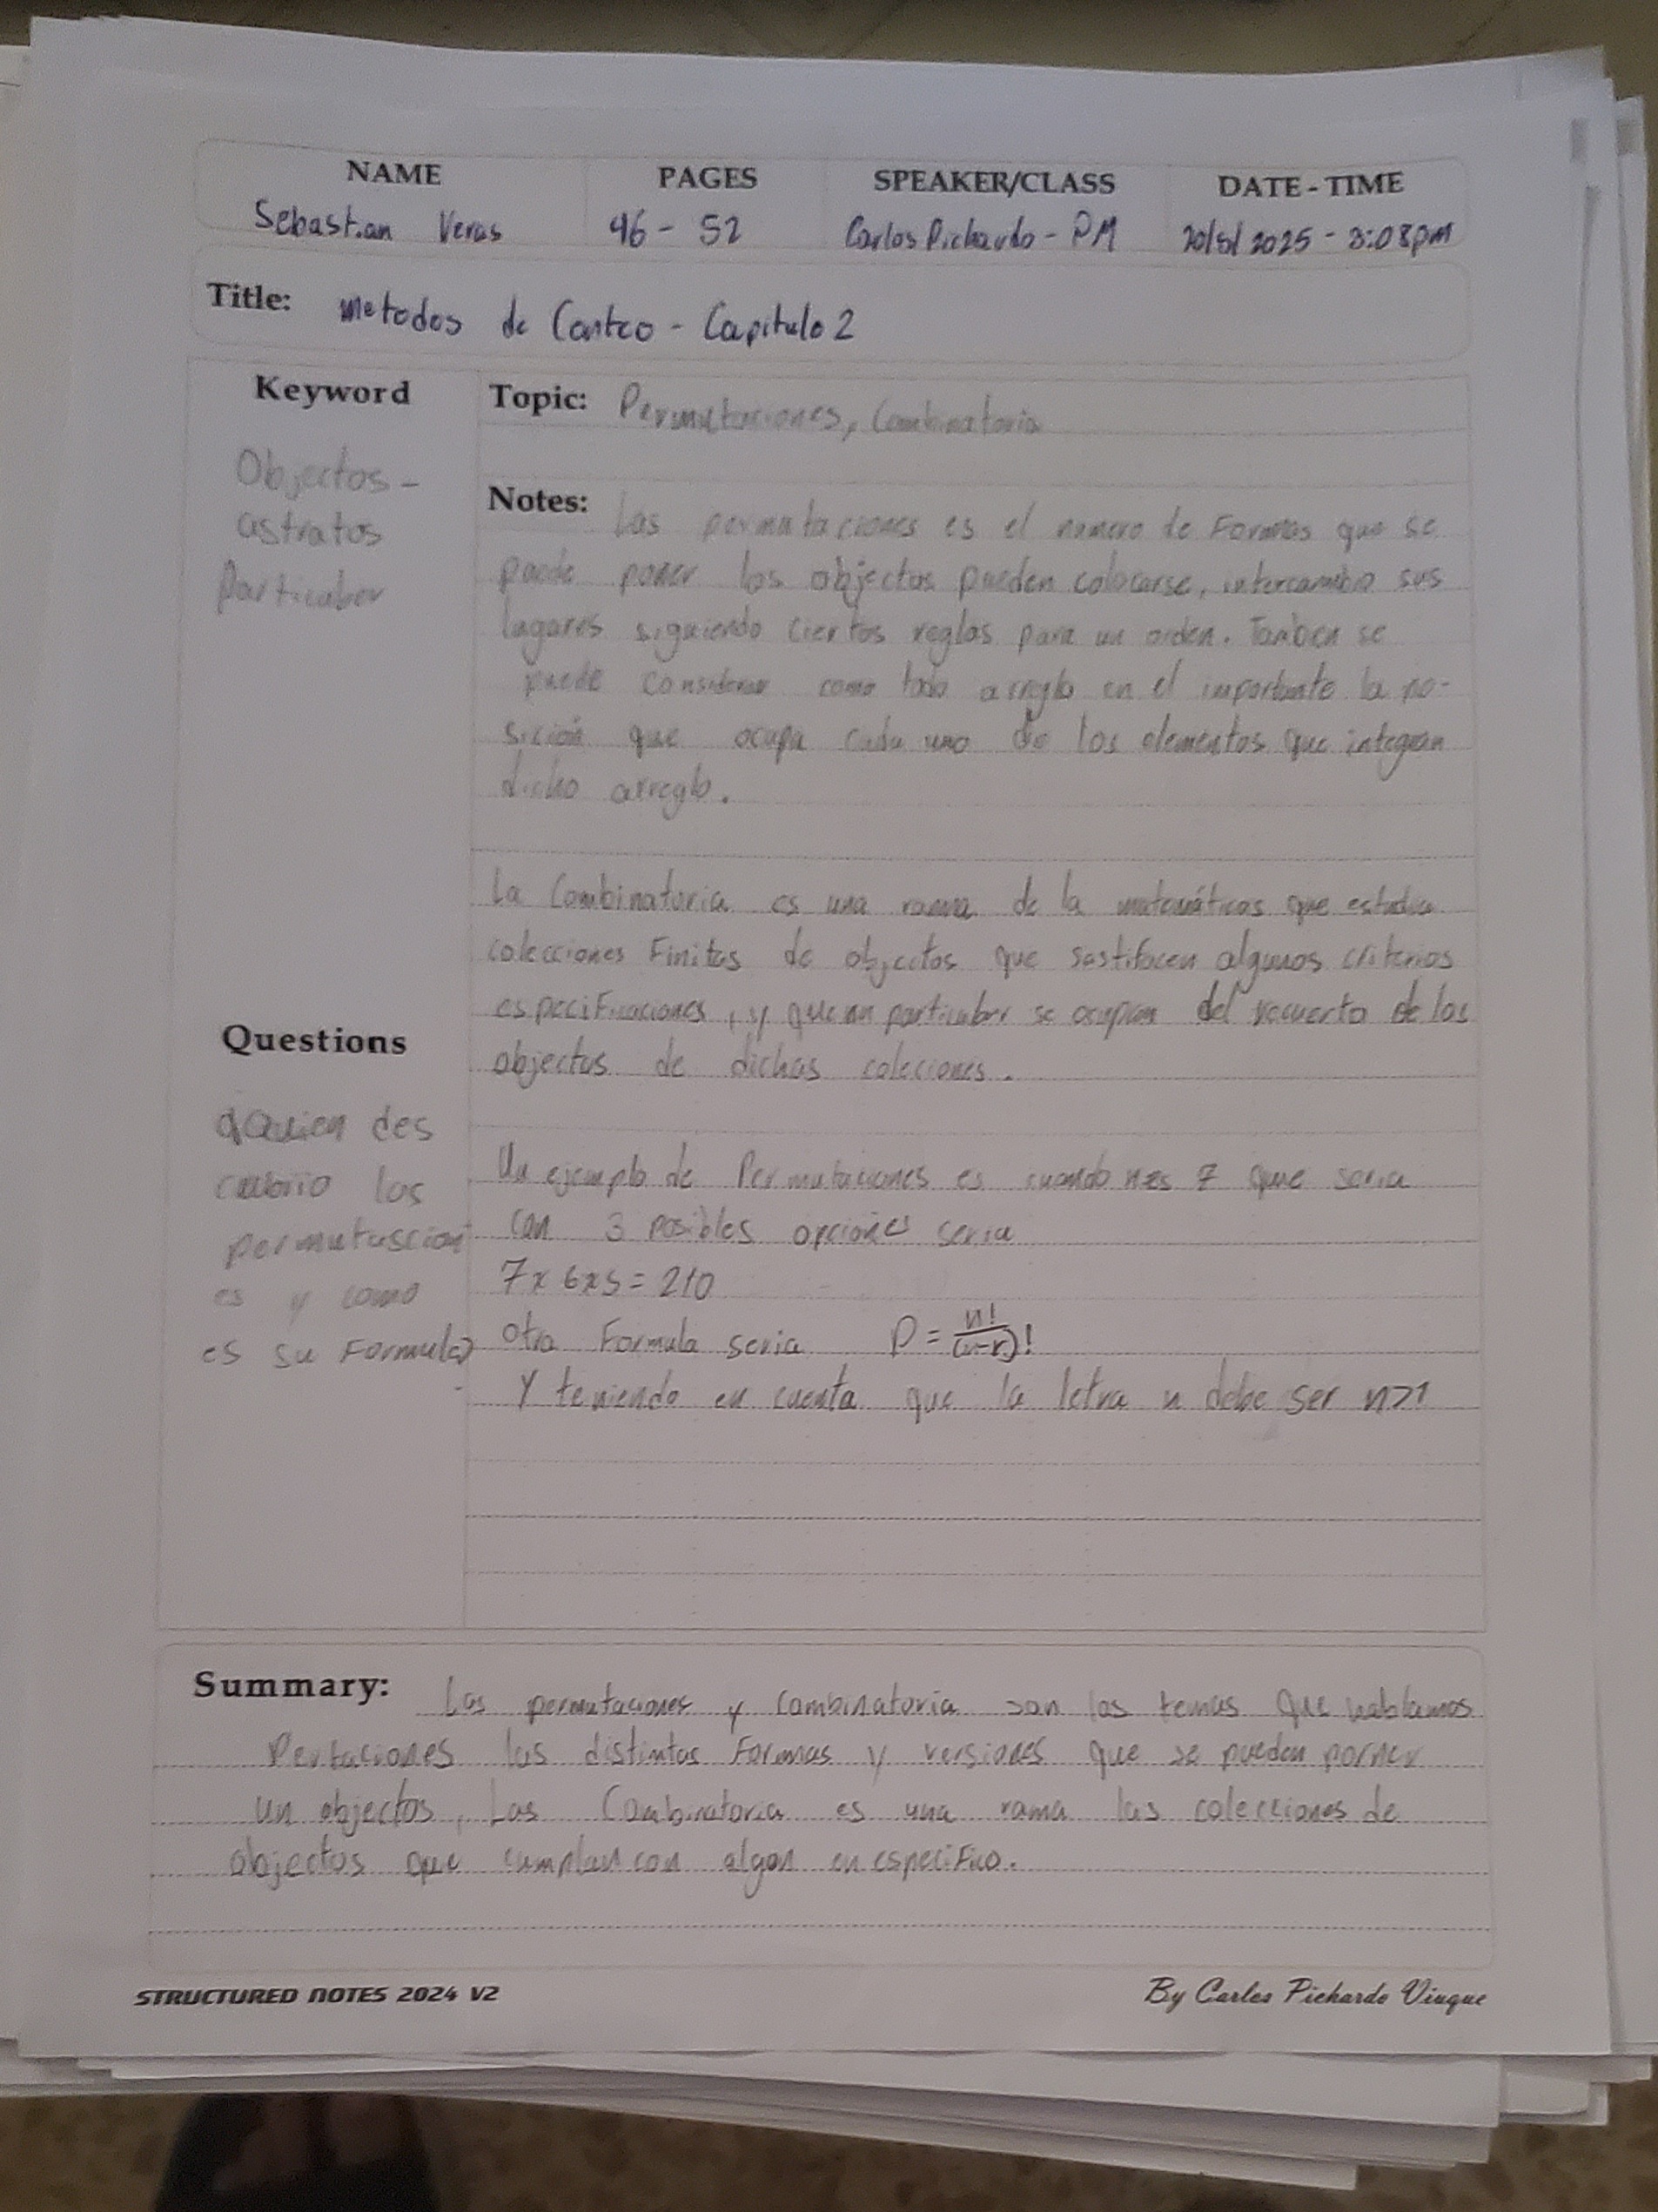 NAME PAGES SPEAKER/CLASS DATE - TIME
Sebastian Veras 46 - 52 Carlos Pichardo - PM 20/5/2025 - 3:08pm
Title: Metodos de Conteo - Capitulo 2
Keyword
Objectos -
astratos
Particuler
Topic: Permutaciones, Combinatoria
Notes: Las permutaciones es el numero de Formas que se
puede poner los objectos pueden colocarse, intercambio sus
lugares siguiendo ciertos reglas para un orden. Tanben se
puede considerar como todo arreglo en el importante la po-
sición que ocupa cada uno de los elementos que integran
dicho arreglo.
La Combinatoria es una rama de la matemáticas que estudia
colecciones Finitas de objectos que sastifacen algunos criterios
especificaciones, y que en particuler se ocupan del recuerto de los
objectos de dichas coleciones.
Questions
¿Quien des
cubrio las
permutascion
es y como
es su Formula?
Un ejemplo de Permutaciones es cuando n es 7 que seria
con 3 posibles opciones seria
7x6x5=210
otra Formula seria P = n!/(n-r)!
Y teniendo en cuenta que la letra n debe ser n>1
Summary: Las permutaciones y combinatoria son los temas que hablamos
Pertaciones las distintas Formas y versiones que se pueden porner
un objectos, Las Combinatoria es una rama las colecciones de
objectos que cumplan con algon en especifico.
STRUCTURED NOTES 2024 V2 By Carlos Pichardo Viuque